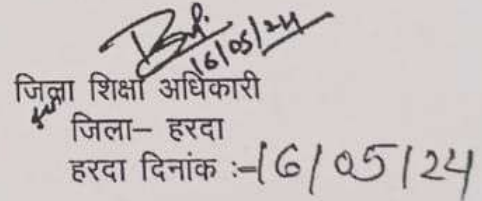 16/05/24
जिला शिक्षा अधिकारी
जिला– हरदा
हरदा दिनांक :-16/05/24